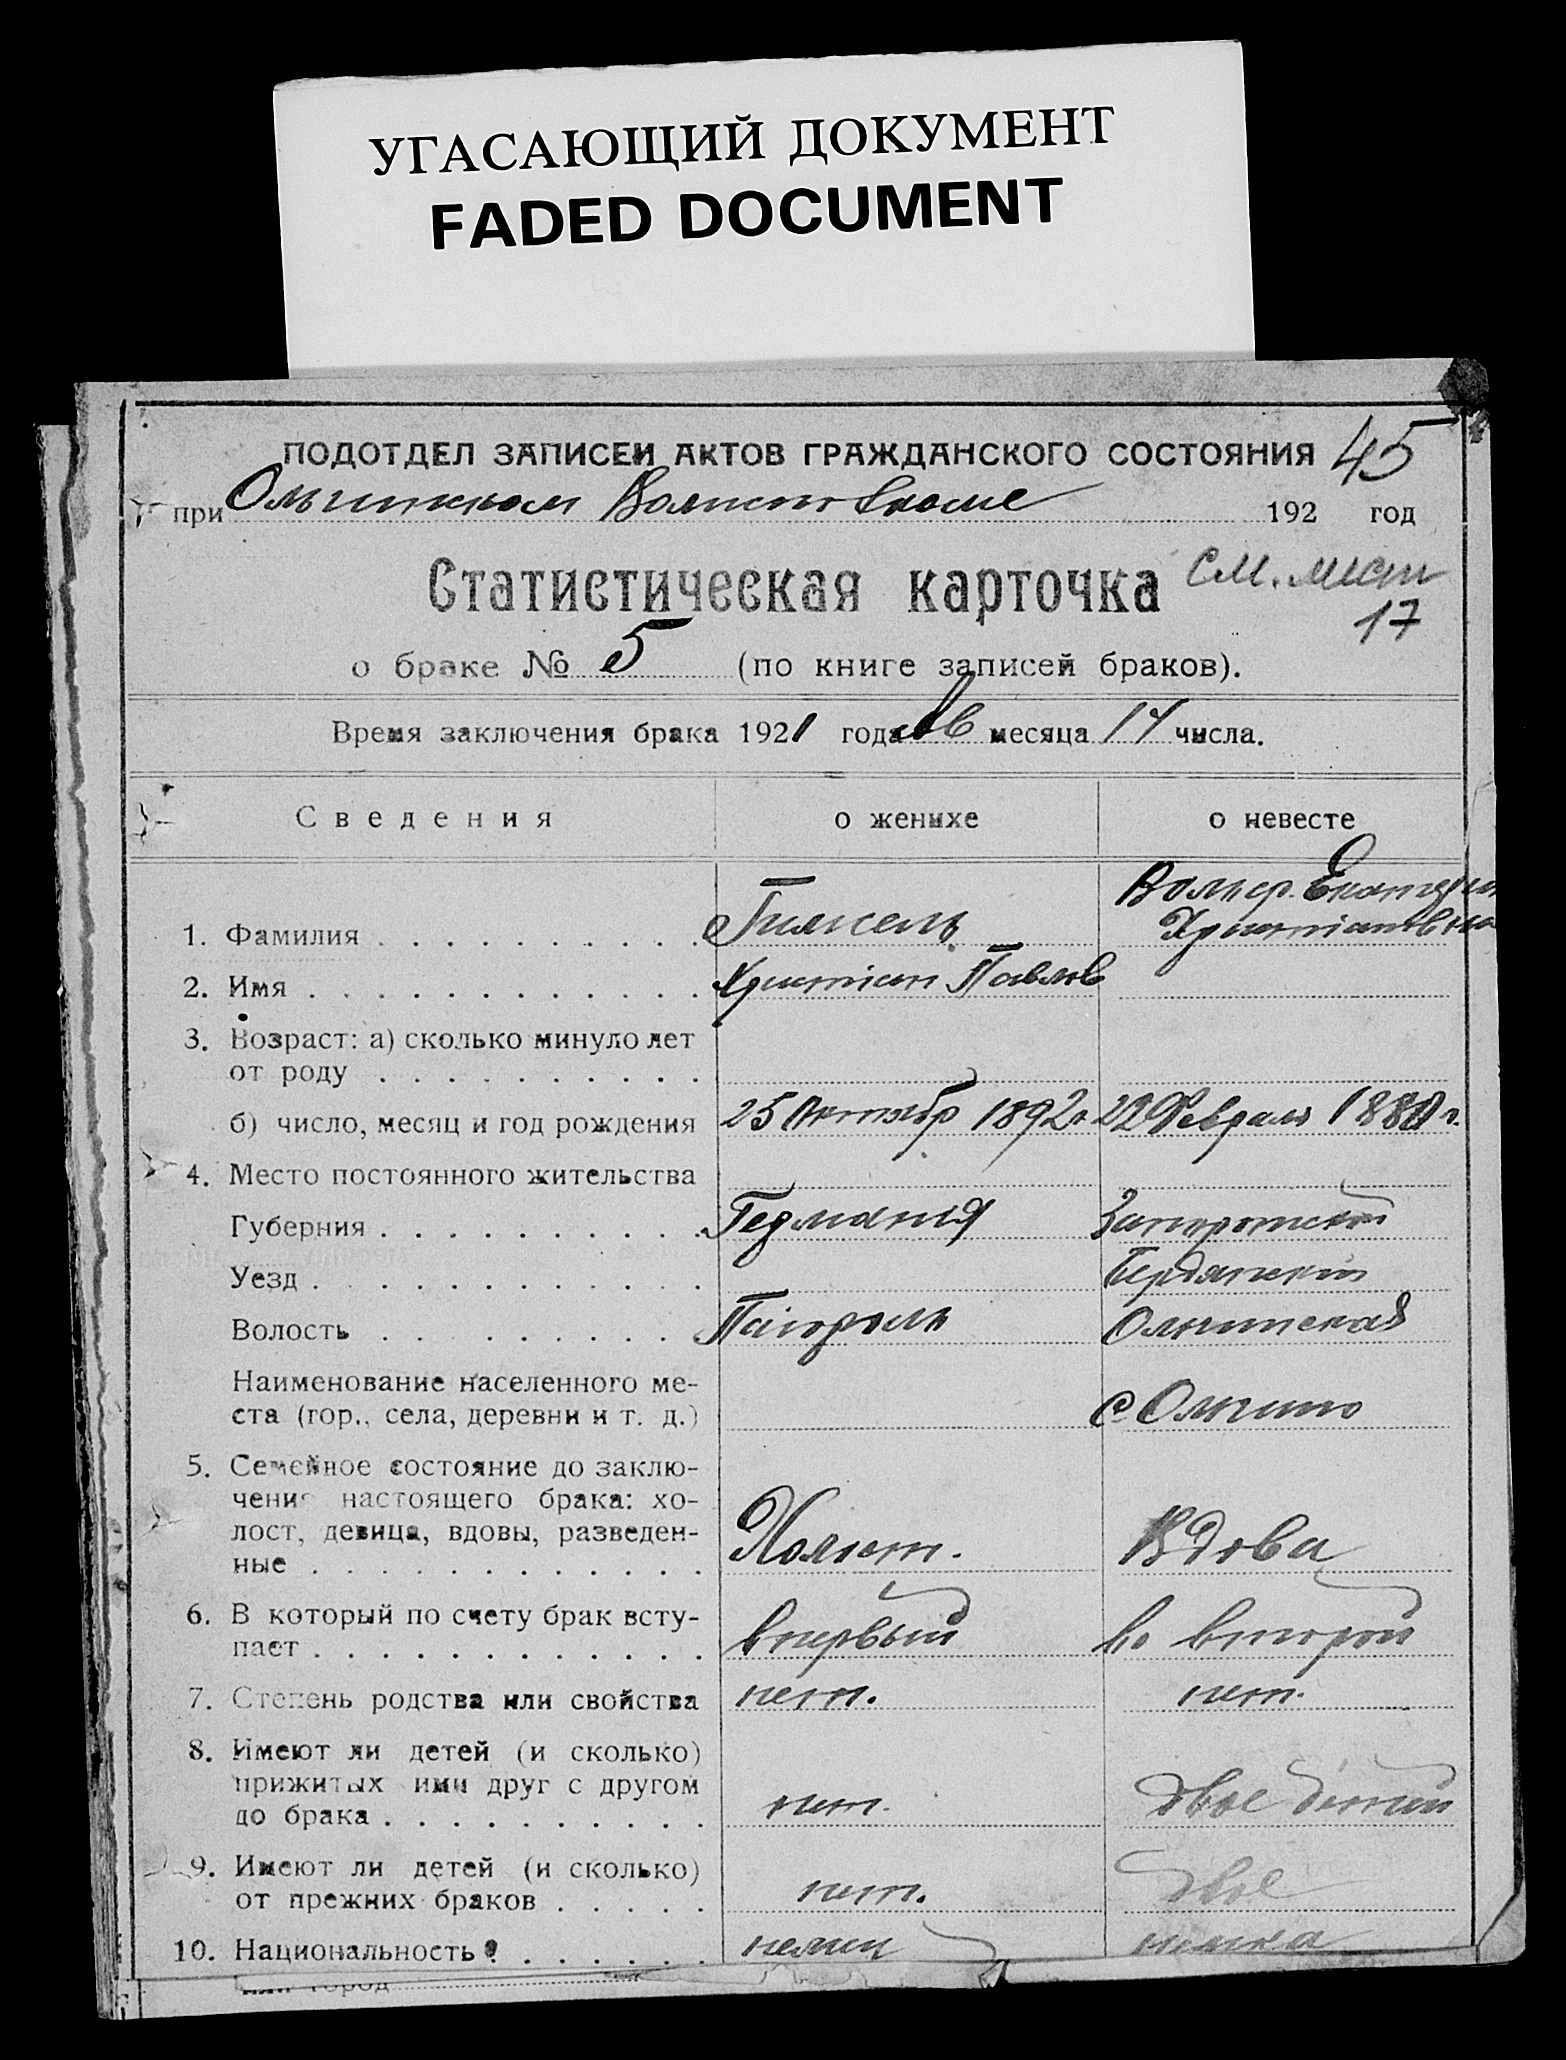 УГАСАЮЩИЙ ДОКУМЕНТ
FADED DOCUMENT
ПОДОТДЕЛ ЗАПИСЕЙ АКТОВ ГРАЖДАНСКОГО СОСТОЯНИЯ 45
при Ольгинском 192 год
Статистическая карточка см. лист
17
о браке № 5 (по книге записей браков).
Время заключения брака 1921 года месяца числа.
Сведения о женихе о невесте
Христиановна
1. Фамилия . . . . . . . . . .
2. Имя . . . . . . . . . . . . Христиан Павлов
3. Возраст: а) сколько минуло лет
от роду . . . . . . . . . .
б) число, месяц и год рождения 25 Октябр 1892 г. 22 Февраля г.
4. Место постоянного жительства
Губерния . . . . . . . . . . Германия
Уезд . . . . . . . . . . . . Бердянский
Волость . . . . . . . . . . Ольгинская
Наименование населенного ме-
ста (гор., села, деревни и т. д.) с Ольгино
5. Семейное состояние до заклю-
чения настоящего брака: хо-
лост, девица, вдовы, разведен-
ные . . . . . . . . . . . . Холост. Вдова
6. В который по счету брак всту-
пает . . . . . . . . . . . . впервый во второй
7. Степень родства или свойства нет. нет.
8. Имеют ли детей (и сколько)
прижитых ими друг с другом
до брака . . . . . . . . . . нет. двое
9. Имеют ли детей (и сколько)
от прежних браков . . . . . нет. двое
10. Национальность . . . . . . немец немка
или город